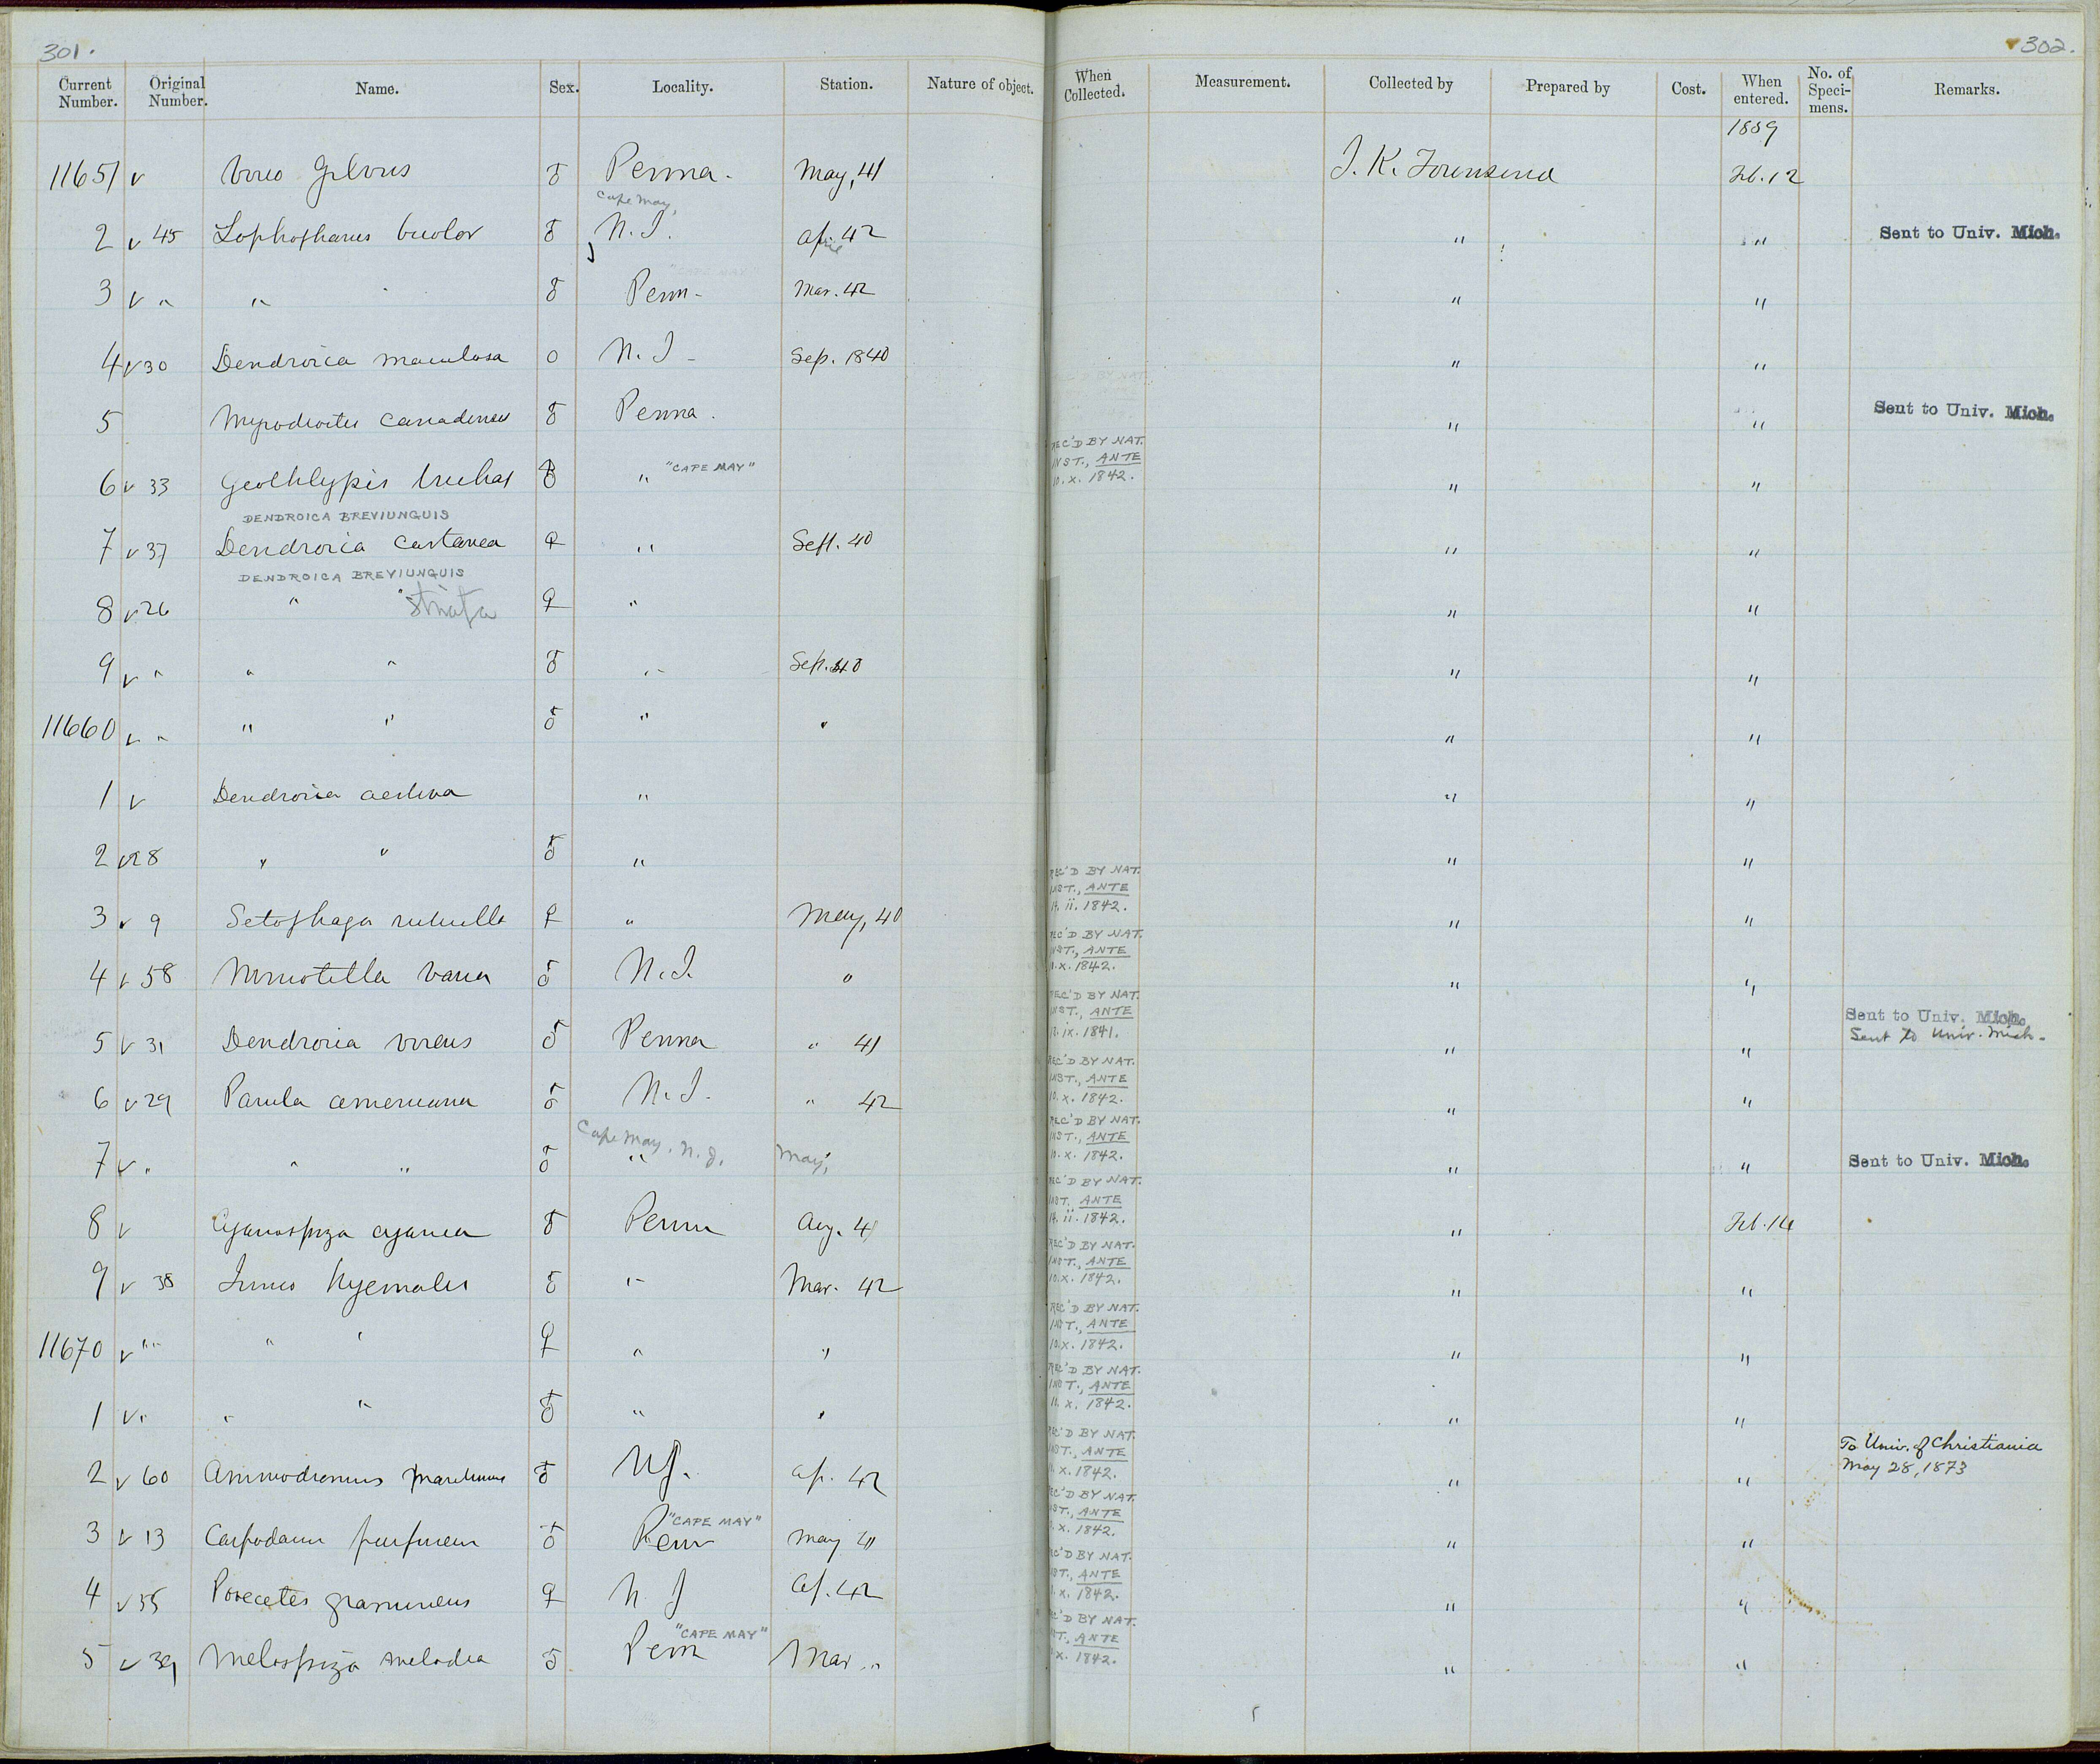 301.
302.
Current Number. Original Number. Name. Sex. Locality. Station. Nature of object. When Collected. Measurement. Collected by Prepared by Cost. When entered. No. of Speci-mens. Remarks.
1859
11651 v Vireo Gilvus ♂ Penna. May, 41 J. K. Townsend Feb. 12
Cape May,
2 v 45 Lophophanes bicolor ♂ N.J. April 42 " " Sent to Univ. Mich.
"CAPE MAY"
3 v " " ♂ Penn- Mar. 42 " "
4 v 30 Dendroica maculosa o N.J- Sep. 1840 " "
5 Myiodioctes canadensis ♂ Penna. " " Sent to Univ. Mich.
6 v 33 Geothlypis trichas ♂ " "CAPE MAY" REC'D BY NAT. INST., ANTE 10. x. 1842. " "
DENDROICA BREVIUNGUIS
7 v 37 Dendroica castanea ♀ " Sept. 40 " "
DENDROICA BREVIUNGUIS
8 v 26 " " striata ♀ " " "
9 v " " " ♂ " Sep. 40 " "
11660 v " " " ♂ " " " "
1 v Dendroica aestiva " " "
2 v 28 " " ♂ " " "
3 v 9 Setophaga ruticilla ♀ " May, 40 REC'D BY NAT. INST., ANTE 14. ii. 1842. " "
4 v 58 Mniotilta varia ♂ N.J. " REC'D BY NAT. INST., ANTE x. 1842. " "
5 v 31 Dendroica virens ♂ Penna " 41 REC'D BY NAT. INST., ANTE ix. 1841. " " Sent to Univ. Mich.
Sent to Univ. Mich.
6 v 29 Parula americana ♂ N.J. " 42 REC'D BY NAT. INST., ANTE 10. x. 1842. " "
Cape May, N.J.
7 v " " " ♂ " May, REC'D BY NAT. INST., ANTE 10. x. 1842. " " Sent to Univ. Mich.
8 v Cyanospiza cyanea ♂ Penna Aug. 41 REC'D BY NAT. INST. ANTE 14. ii. 1842. " Feb. 14
9 v 38 Junco hyemalis ♂ " Mar. 42 REC'D BY NAT. INST., ANTE 10. x. 1842. " "
11670 v " " " ♀ " " REC'D BY NAT. INST., ANTE 10. x. 1842. " "
1 v " " " ♂ " " REC'D BY NAT. INST., ANTE x. 1842. " "
2 v 60 Ammodromus maritimus ♂ NJ. Ap. 42 REC'D BY NAT. INST., ANTE x. 1842. " " To Univ. of Christiania
May 28, 1873
3 v 13 Carpodacus purpureus ♂ Penn "CAPE MAY" May 41 REC'D BY NAT. INST., ANTE x. 1842. " "
4 v Pooecetes gramineus ♀ N J Ap. 42 REC'D BY NAT. INST., ANTE x. 1842. " "
5 v 39 Melospiza melodia ♂ Penn "CAPE MAY" Mar " REC'D BY NAT. INST., ANTE x. 1842. " "